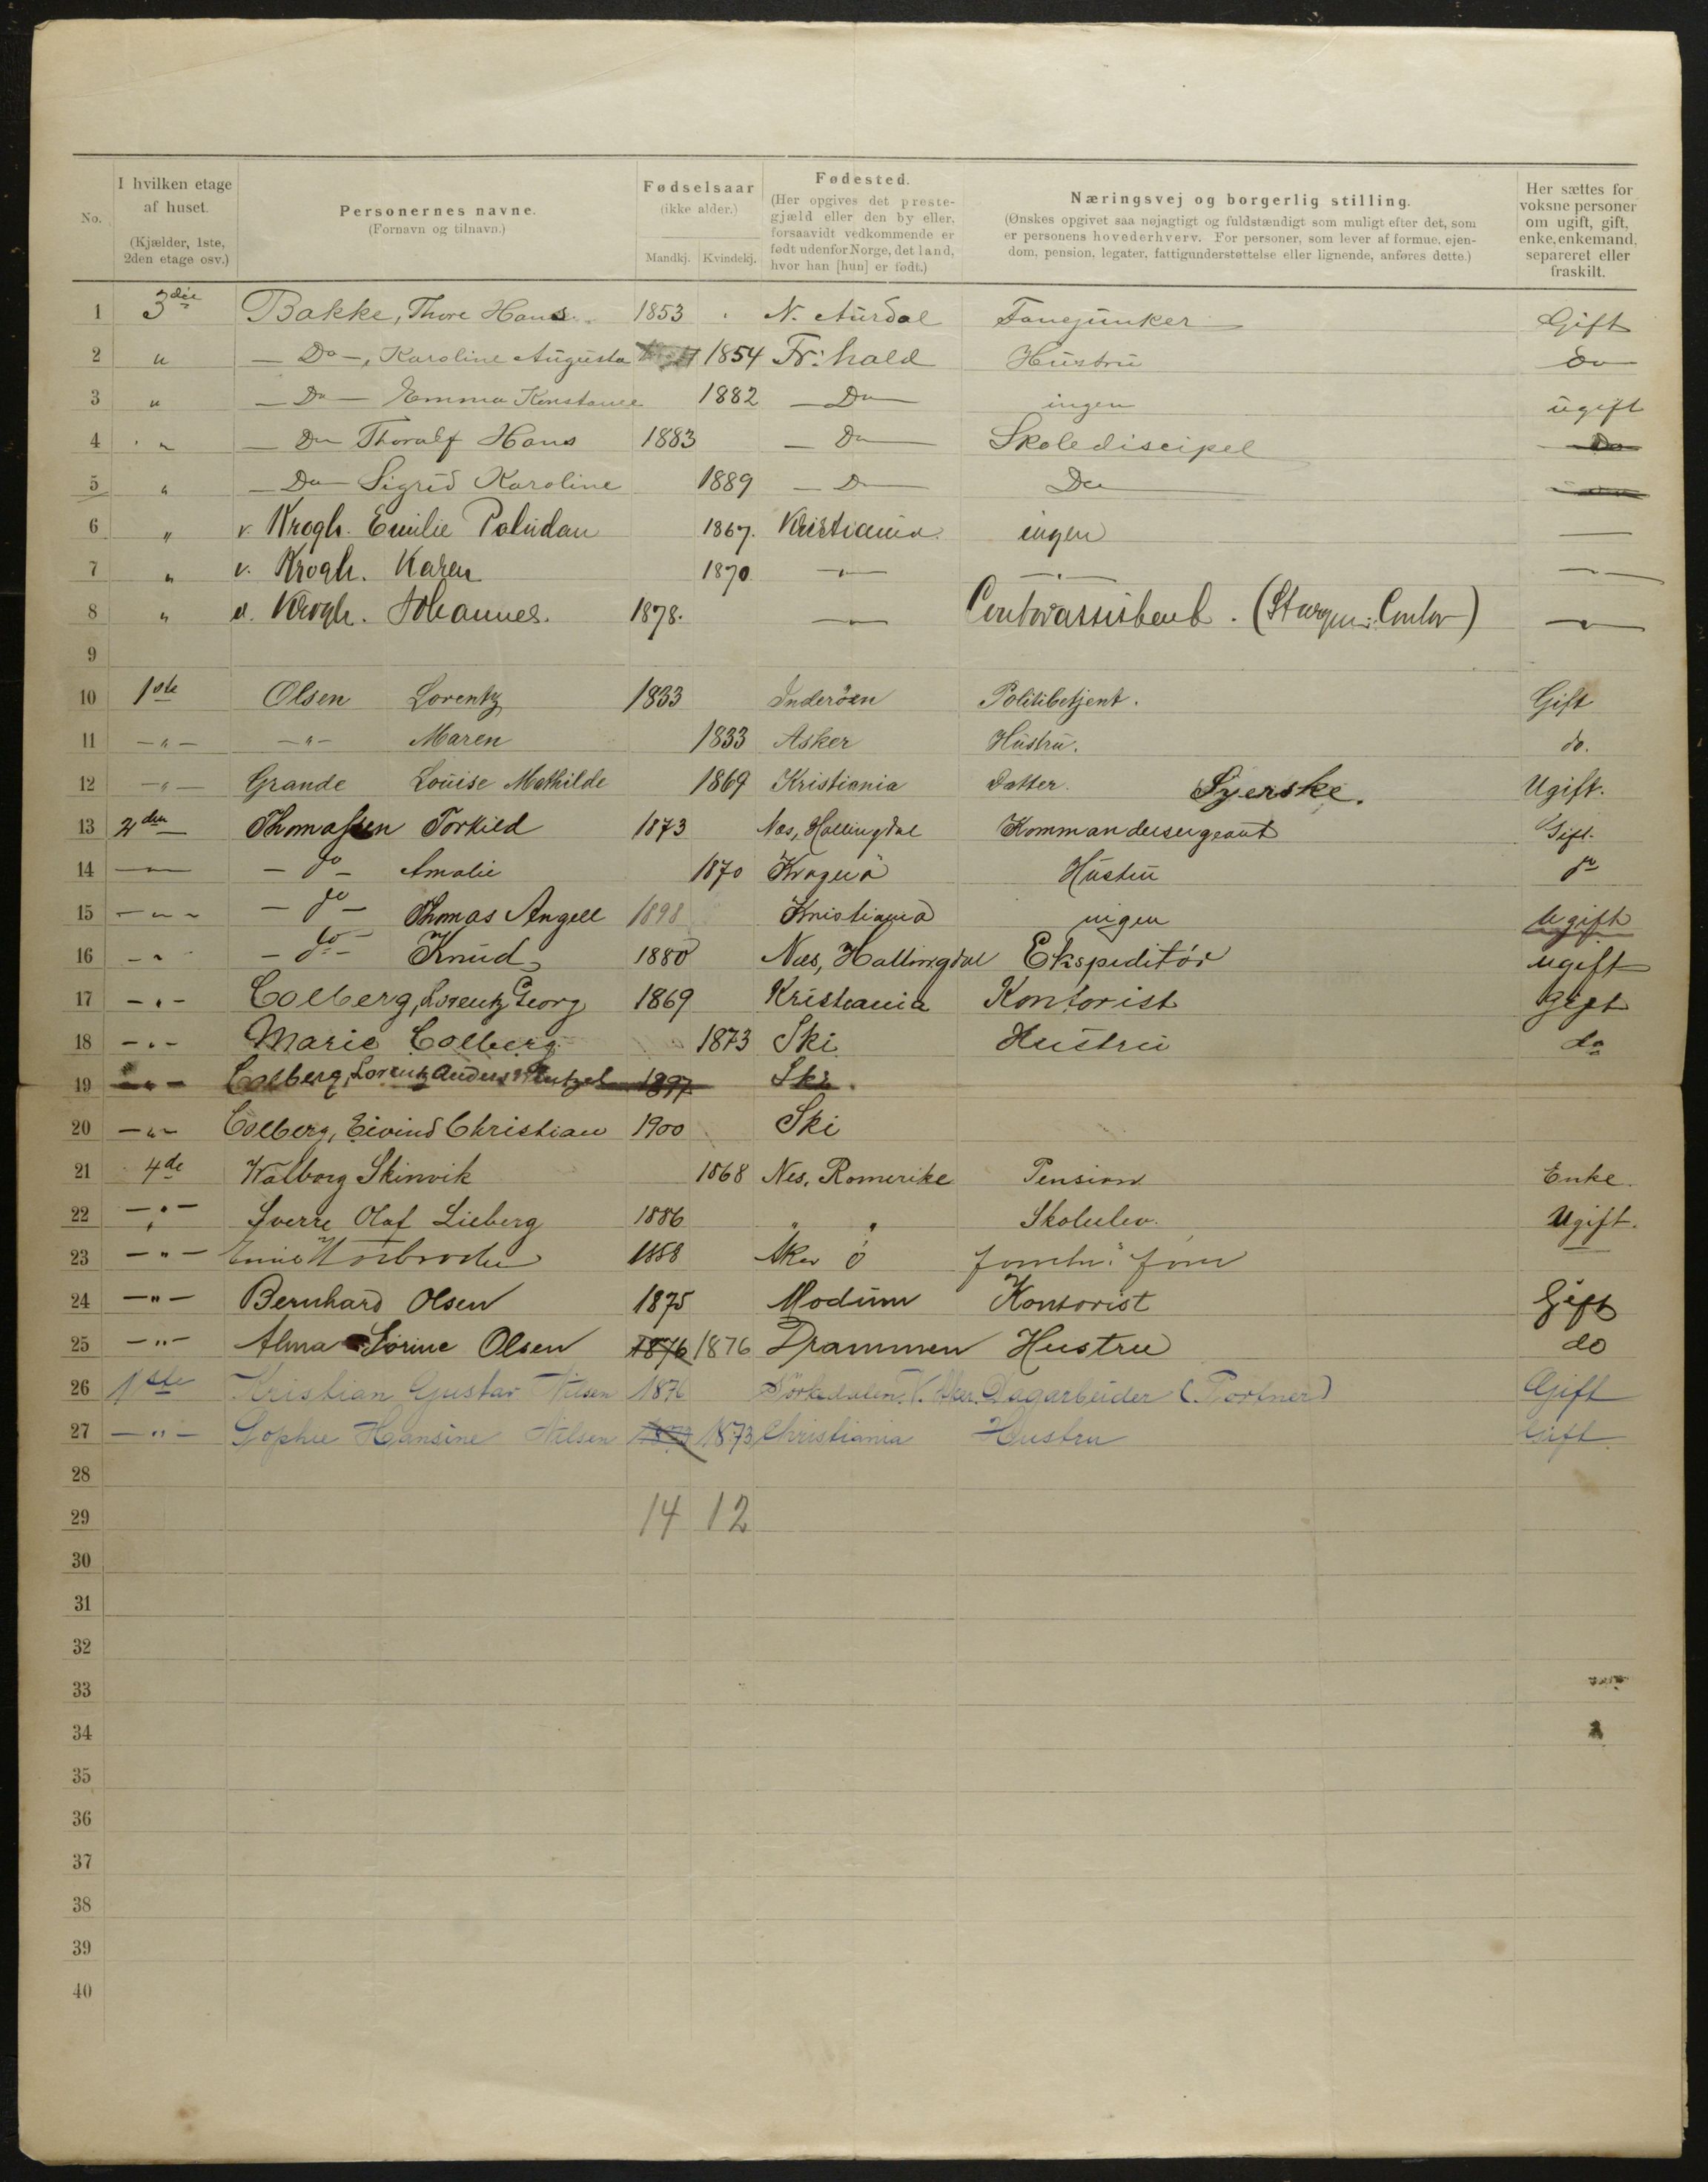 No.
I hvilken etage af huset. (Kjælder, 1ste, 2den etage osv.)
Personernes navne. (Fornavn og tilnavn.)
Fødselsaar (ikke alder.) Mandkj. Kvindekj.
Fødested. (Her opgives det prestegjæld eller den by eller, forsaavidt vedkommende er født udenfor Norge, det land, hvor han [hun] er født.)
Næringsvej og borgerlig stilling. (Ønskes opgivet saa nøjagtigt og fuldstændigt som muligt efter det, som er personens hovederhverv. For personer, som lever af formue, ejendom, pension, legater, fattigunderstøttelse eller lignende, anføres dette.)
Her sættes for voksne personer om ugift, gift, enke, enkemand, separeret eller fraskilt.
1 3die Bakke, Thore Hans 1853 N. Aurdal Fanejunker Gift
2 " — Do —, Karoline Augusta 1854 Fr:hald Hustru do
3 " — Do — Emma Konstance 1882 — Do — ingen ugift
4 " — Do Thoralf Hans 1883 — Do — Skolediscipel Do
5 " — Do — Sigrid Karoline 1889 — D — Do
6 " v. Krogh. Emilie Paludan 1867. Kristiania. ingen —
7 " v. Krogh. Karen 1870 — " — — " — — " —
8 " v. Krogh. Johannes. 1878. — " — Contorassistent. ( Contor) — " —
9
10 1ste Olsen Lorentz 1833 Inderöen Politibetjent. Gift
11 — " — — " — Maren 1833 Asker Hustru. do.
12 — " — Grande Louise Mathilde 1869 Kristiania Datter. Syerske. Ugift.
13 2den Thomassen Torkild 1873 Næs, Hallingdal Kommandersergeant Gift.
14 — " — — do — Amalie 1870 Kragerö Hustru do
15 — " — — do — Thomas Angell 1898 Kristiania ingen Ugift
16 — " — do — Knud 1880 Næs, Hallingdal Ekspeditör ugift
17 — " — Colberg, Lorentz Georg 1869 Kristiania Kontorist gift
18 — " — Marie Colberg 1873 Ski Hustru do
19 — " — Colberg, Lorentz Anders 1897 Ski.
20 — " — Colberg, Eivind Christian 1900 Ski
21 4de Walborg Skinvik 1868 Nes, Romerike Pension Enke.
22 — " — Sverre Olaf Lieberg 1886 " " Skoleelev. Ugift.
23 — " — 1858
24 — " — Bernhard Olsen 1875 Modum Kontorist Gift
25 — " — Alma Sörine Olsen 1876 1876 Drammen Hustru do
26 1ste Kristian Gustav Nilsen 1876 Sörkedalen. V. Aker. Dagarbeider (Portner) Gift
27 — " — Sophie Hansine Nilsen 1873 1873 Christiania Hustru Gift
28
29 14 12
30
31
32
33
34
35
36
37
38
39
40